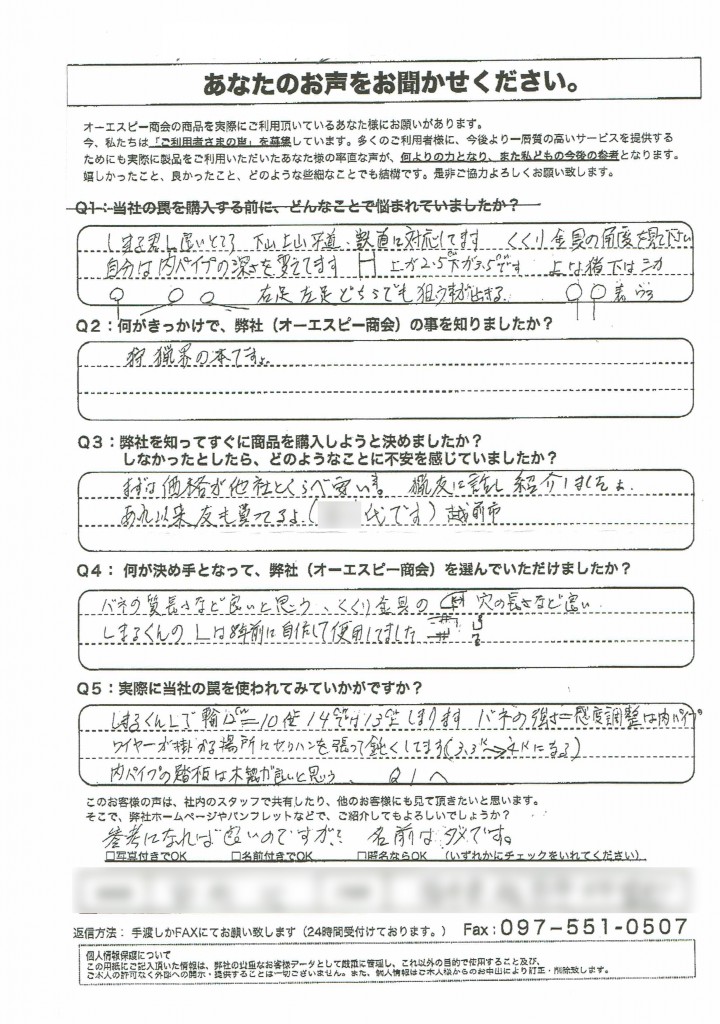 あなたのお声をお聞かせください。
オーエスピー商会の商品を実際にご利用頂いているあなた様にお願いがあります。
今、私たちは「ご利用者さまの声」を募集しています。多くのご利用者様に、今後より一層質の高いサービスを提供する
ためにも実際に製品をご利用いただいたあなた様の率直な声が、何よりの力となり、また私どもの今後の参考となります。
嬉しかったこと、良かったこと、どのような些細なことでも結構です。是非ご協力よろしくお願い致します。
Q1：当社の罠を購入する前に、どんなことで悩まれていましたか？
しまる君し良いところ 下山上山平道、獣道に対応してます くくり金具の角度を見て下さい
自分は内パイプの深さを変えてます 上が2.5下が3.5です 上は猪下はシカ
右足左足どちらでも狙う事が出来る 表 うら
Q2：何がきっかけで、弊社（オーエスピー商会）の事を知りましたか？
狩猟界の本ですよ
Q3：弊社を知ってすぐに商品を購入しようと決めましたか？
しなかったとしたら、どのようなことに不安を感じていましたか？
まずは価格が他社とくらべ安い 猟友に話し紹介しましたよ
あれ以来友も買ってるよ（ 代です）越前市
Q4： 何が決め手となって、弊社（オーエスピー商会）を選んでいただけましたか？
バネの質長さなど良いと思う、くくり金具の 穴の長さなど良い
しまるくんのLは 年前に自作して使用してました
Q5：実際に当社の罠を使われてみていかがですか？
しまるくんLで 10 14 13 しまります バネの強さ=感度調整は内パイプ
ワイヤーが掛かる場所に を張って鈍くしてます(3.3 → 4 になる)
内パイプの踏板は木製が良いと思う、 Q1へ
このお客様の声は、社内のスタッフで共有したり、他のお客様にも見て頂きたいと思います。
そこで、弊社ホームページやパンフレットなどで、ご紹介してもよろしいでしょうか？
参考になれば良いのですが？ 名前はダメです。
□写真付きでOK □名前付きでOK □匿名ならOK （いずれかにチェックをいれてください）
返信方法： 手渡しかFAXにてお願い致します（24時間受付けております。） Fax：097-551-0507
個人情報保護について
この用紙にご記入頂いた情報は、弊社の貴重なお客様データとして厳重に管理し、これ以外の目的で使用すること及び、
ご本人の許可なく外部への開示・提供することは一切ございません。また、個人情報はご本人様からのお申出により訂正・削除致します。